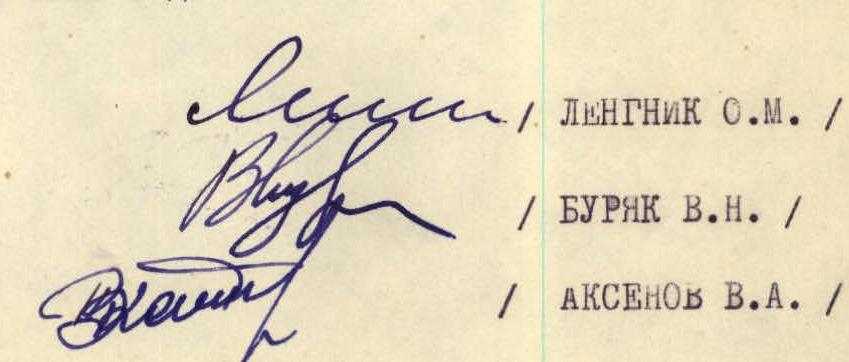 / ЛЕНГНИК О.М. /
/ БУРЯК В.Н. /
/ АКСЕНОВ В.А. /